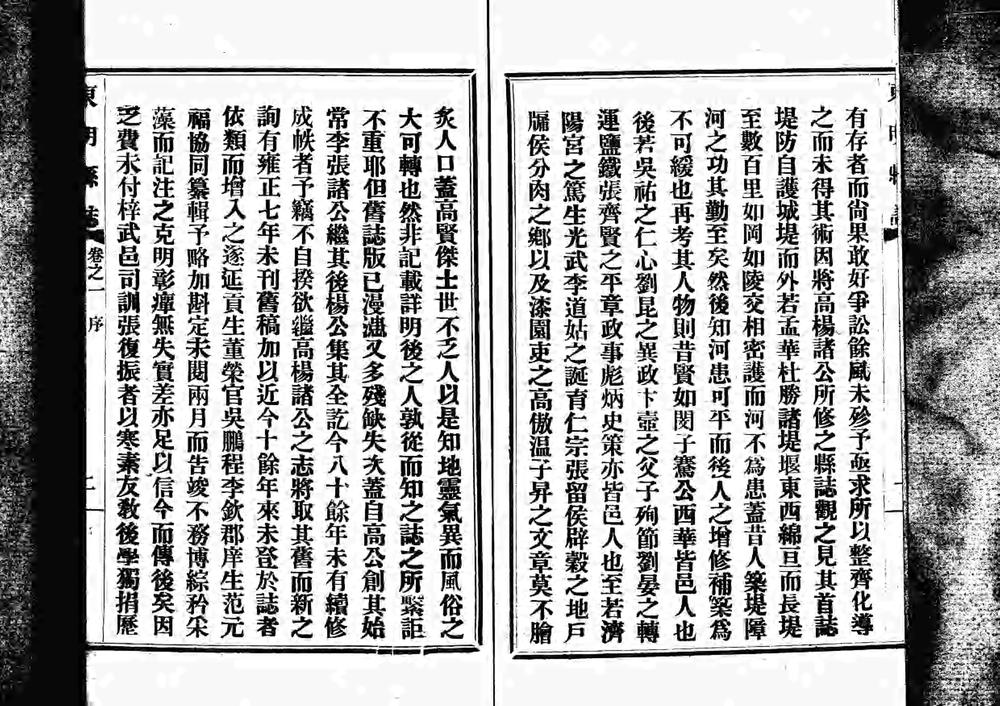 有存者而尙果敢好爭訟餘風未殄予亟求所以整齊化導
之而未得其術因將高楊諸公所修之縣誌觀之見其首誌
堤防自護城堤而外若孟華杜勝諸堤堰東西綿亘而長堤
至數百里如岡如陵交相密護而河不爲患蓋昔人築堤障
河之功其勤至矣然後知河患可平而後人之增修補築爲
不可緩也再考其人物則昔賢如閔子騫公西華皆邑人也
後若吳祐之仁心劉昆之異政卞壼之父子殉節劉晏之轉
運鹽鐵張齊賢之平章政事彪炳史策亦皆邑人也至若濟
陽宮之篤生光武李道姑之誕育仁宗張留侯辟穀之地戶
牖侯分肉之鄕以及漆園吏之高傲溫子昇之文章莫不膾
東明縣誌 卷之一 序
炙人口蓋高賢傑士世不乏人以是知地靈氣異而風俗之
大可轉也然非記載詳明後之人孰從而知之誌之所繫詎
不重耶但舊誌版已漫漶又多殘缺失次蓋自高公創其始
常李張諸公繼其後楊公集其全訖今八十餘年未有續修
成帙者予竊不自揆欲繼高楊諸公之志將取其舊而新之
詢有雍正七年未刊舊稿加以近今十餘年來未登於誌者
依類而增入之遂延貢生董榮官吳鵬程李欽郡庠生范元
福協同纂輯予略加斟定未閱兩月而告竣不務博綜矜采
藻而記注之克明彰癉無失實差亦足以信今而傳後矣因
乏費未付梓武邑司訓張復振者以寒素友敎後學獨捐歷